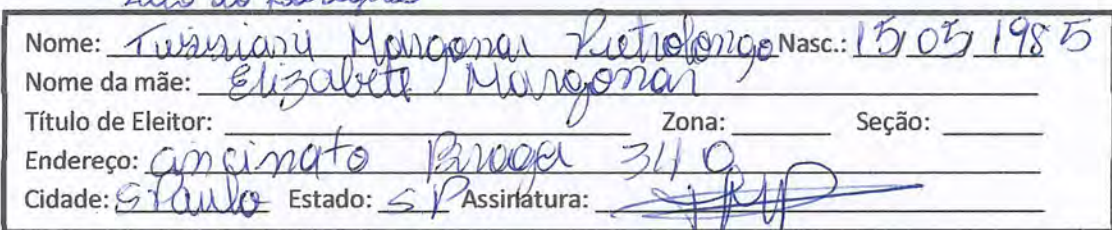 Nome: Margonar Pietrolongo Nasc.: 15/05/1985
Nome da mãe: Elizabete Margonar
Título de Eleitor: Zona: Seção:
Endereço: Cincinato Braga 340
Cidade: S Paulo Estado: SP Assinatura: